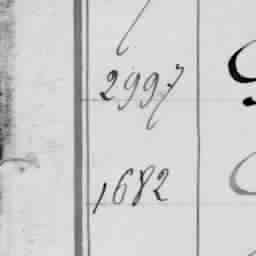 2997
1682